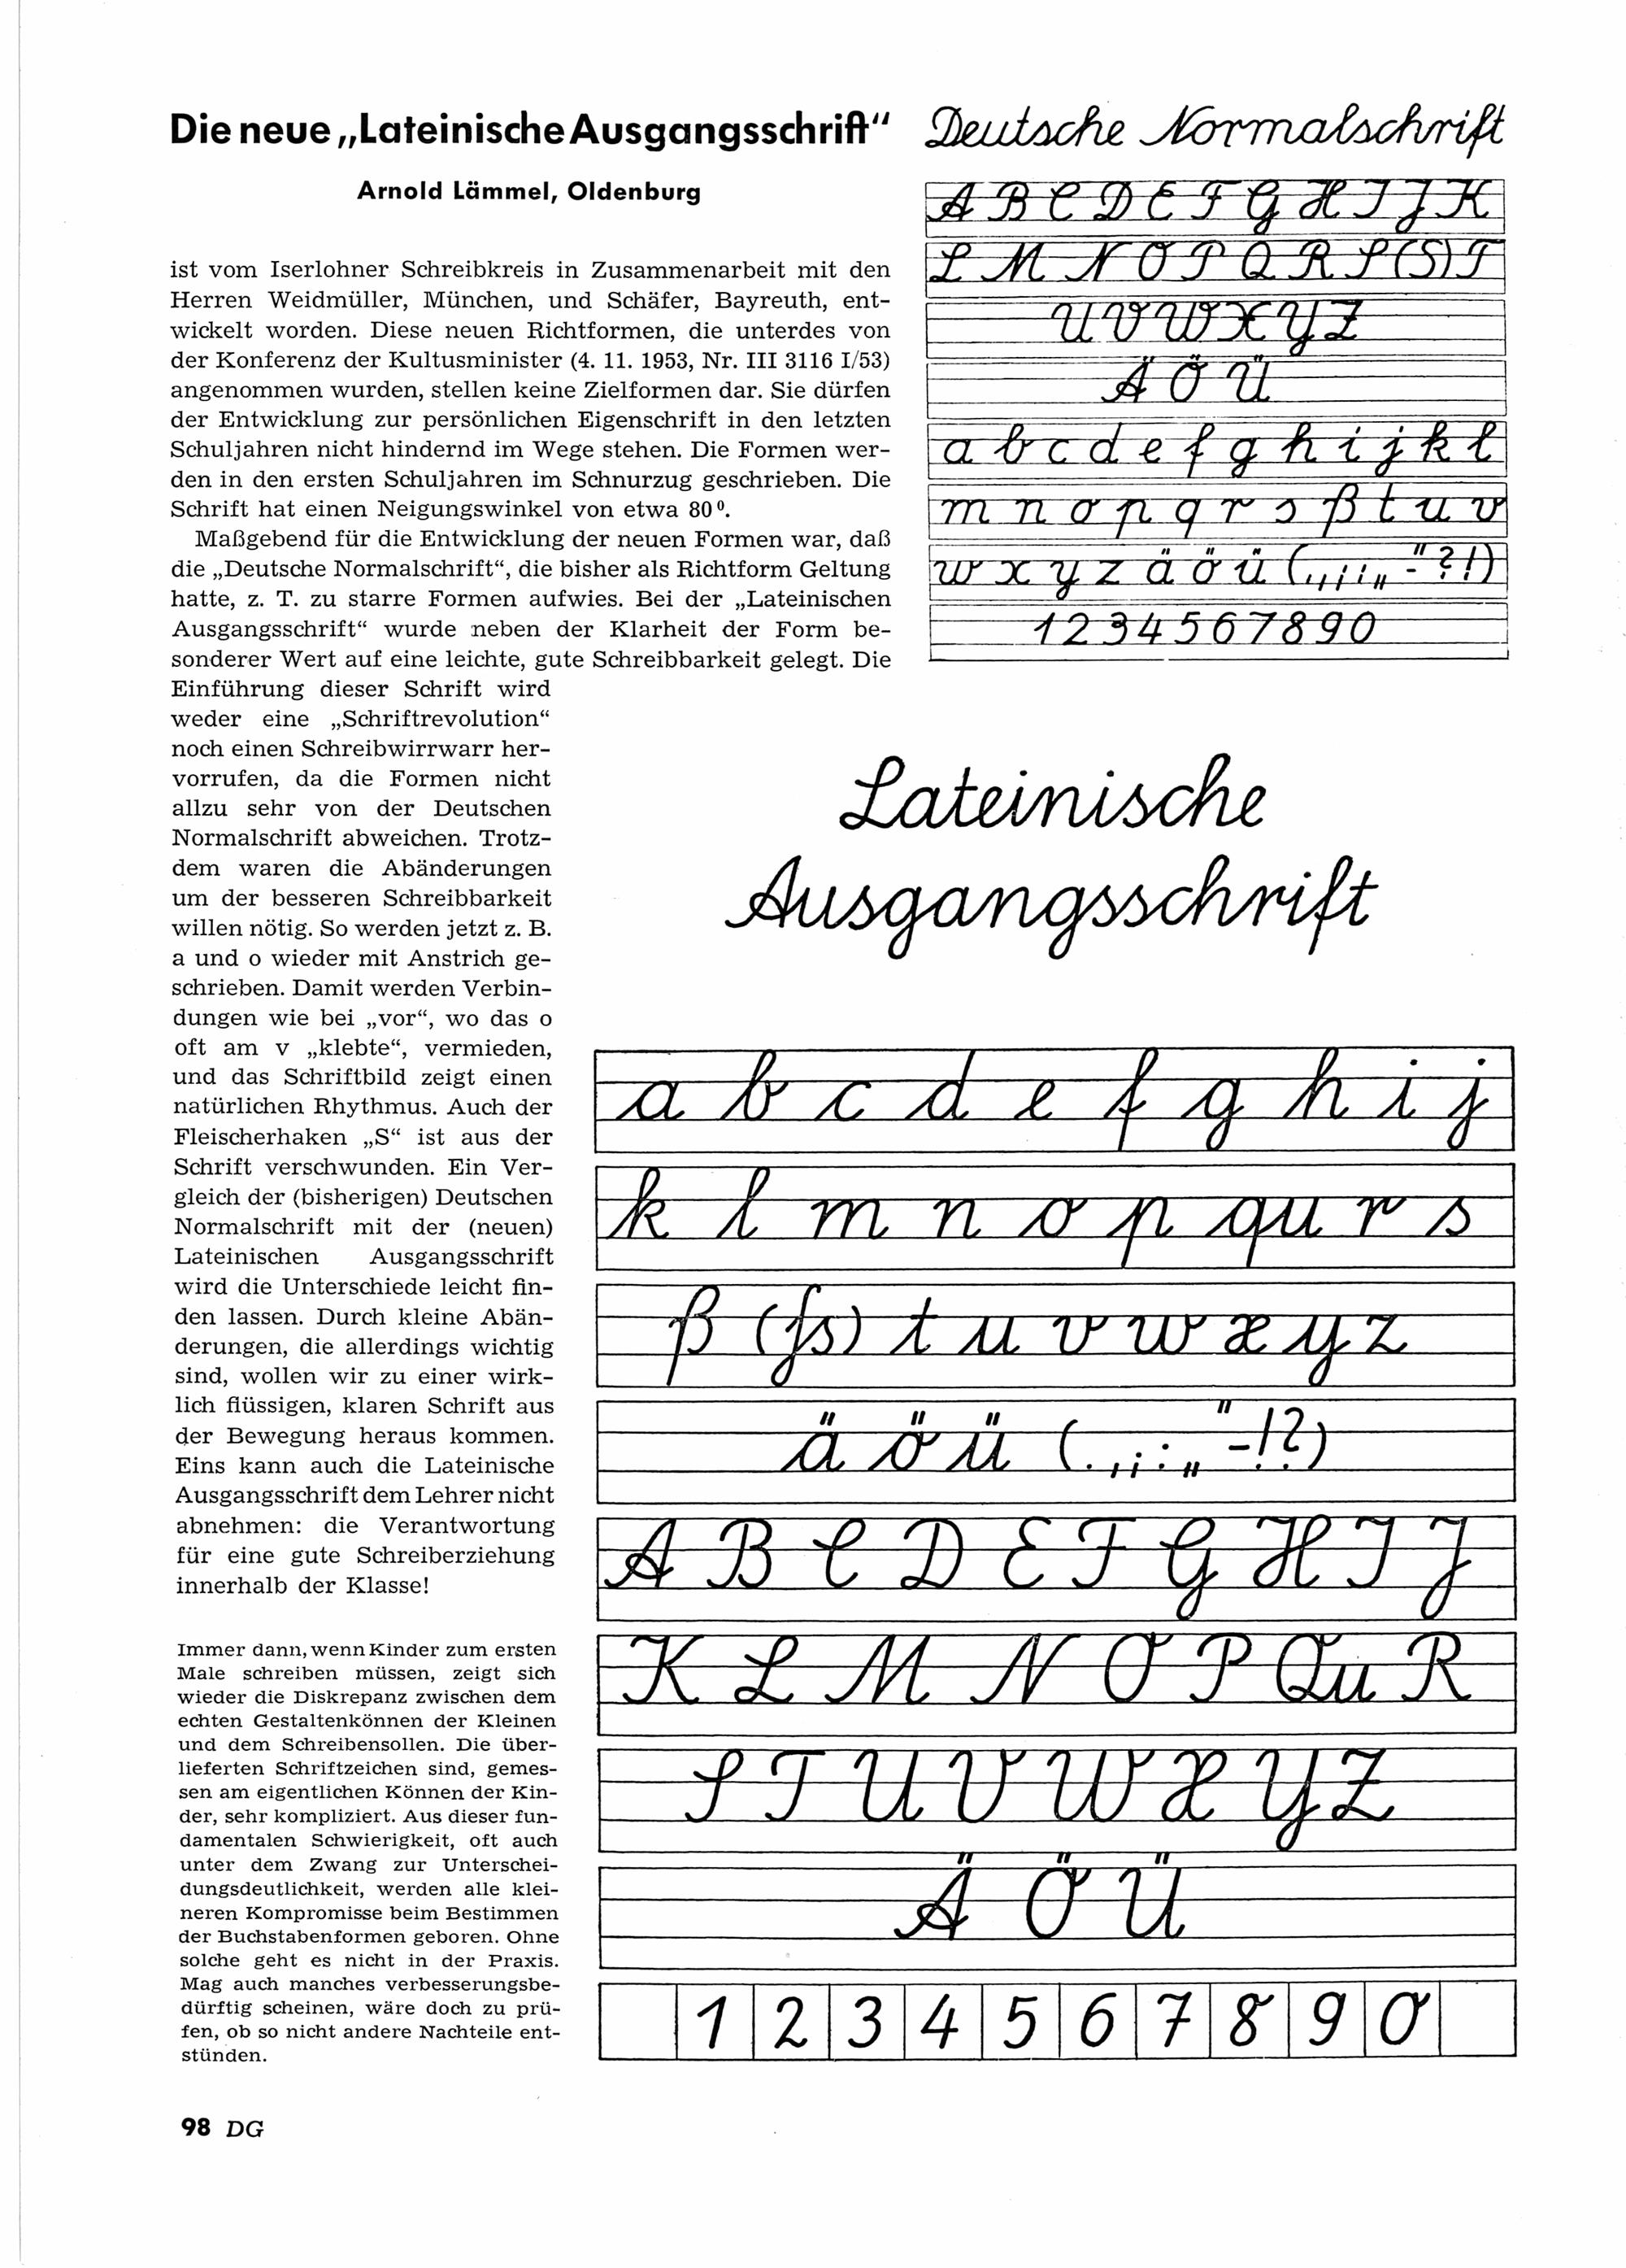 Die neue „Lateinische Ausgangsschrift“
Arnold Lämmel, Oldenburg
ist vom Iserlohner Schreibkreis in Zusammenarbeit mit den
Herren Weidmüller, München, und Schäfer, Bayreuth, ent-
wickelt worden. Diese neuen Richtformen, die unterdes von
der Konferenz der Kultusminister (4. 11. 1953, Nr. III 3116 I/53)
angenommen wurden, stellen keine Zielformen dar. Sie dürfen
der Entwicklung zur persönlichen Eigenschrift in den letzten
Schuljahren nicht hindernd im Wege stehen. Die Formen wer-
den in den ersten Schuljahren im Schnurzug geschrieben. Die
Schrift hat einen Neigungswinkel von etwa 80⁰.
Maßgebend für die Entwicklung der neuen Formen war, daß
die „Deutsche Normalschrift“, die bisher als Richtform Geltung
hatte, z. T. zu starre Formen aufwies. Bei der „Lateinischen
Ausgangsschrift“ wurde neben der Klarheit der Form be-
sonderer Wert auf eine leichte, gute Schreibbarkeit gelegt. Die
Einführung dieser Schrift wird
weder eine „Schriftrevolution“
noch einen Schreibwirrwarr her-
vorrufen, da die Formen nicht
allzu sehr von der Deutschen
Normalschrift abweichen. Trotz-
dem waren die Abänderungen
um der besseren Schreibbarkeit
willen nötig. So werden jetzt z. B.
a und o wieder mit Anstrich ge-
schrieben. Damit werden Verbin-
dungen wie bei „vor“, wo das o
oft am v „klebte“, vermieden,
und das Schriftbild zeigt einen
natürlichen Rhythmus. Auch der
Fleischerhaken „S“ ist aus der
Schrift verschwunden. Ein Ver-
gleich der (bisherigen) Deutschen
Normalschrift mit der (neuen)
Lateinischen Ausgangsschrift
wird die Unterschiede leicht fin-
den lassen. Durch kleine Abän-
derungen, die allerdings wichtig
sind, wollen wir zu einer wirk-
lich flüssigen, klaren Schrift aus
der Bewegung heraus kommen.
Eins kann auch die Lateinische
Ausgangsschrift dem Lehrer nicht
abnehmen: die Verantwortung
für eine gute Schreiberziehung
innerhalb der Klasse!
Immer dann, wenn Kinder zum ersten
Male schreiben müssen, zeigt sich
wieder die Diskrepanz zwischen dem
echten Gestaltenkönnen der Kleinen
und dem Schreibensollen. Die über-
lieferten Schriftzeichen sind, gemes-
sen am eigentlichen Können der Kin-
der, sehr kompliziert. Aus dieser fun-
damentalen Schwierigkeit, oft auch
unter dem Zwang zur Unterschei-
dungsdeutlichkeit, werden alle klei-
neren Kompromisse beim Bestimmen
der Buchstabenformen geboren. Ohne
solche geht es nicht in der Praxis.
Mag auch manches verbesserungsbe-
dürftig scheinen, wäre doch zu prü-
fen, ob so nicht andere Nachteile ent-
stünden.
Deutsche Normalschrift
A B C D E F G H I J K
L M N O P Q R S (S) T
U V W X Y Z
Ä Ö Ü
a b c d e f g h i j k l
m n o p q r s ß t u v
w x y z ä ö ü (.,;:„-“?!)
1 2 3 4 5 6 7 8 9 0
Lateinische
Ausgangsschrift
a b c d e f g h i j
k l m n o p qu r s
ß (ſs) t u v w x y z
ä ö ü (.,;:„“-!?)
A B C D E F G H I J
K L M N O P Qu R
S T U V W X Y Z
Ä Ö Ü
1 2 3 4 5 6 7 8 9 0
98 DG